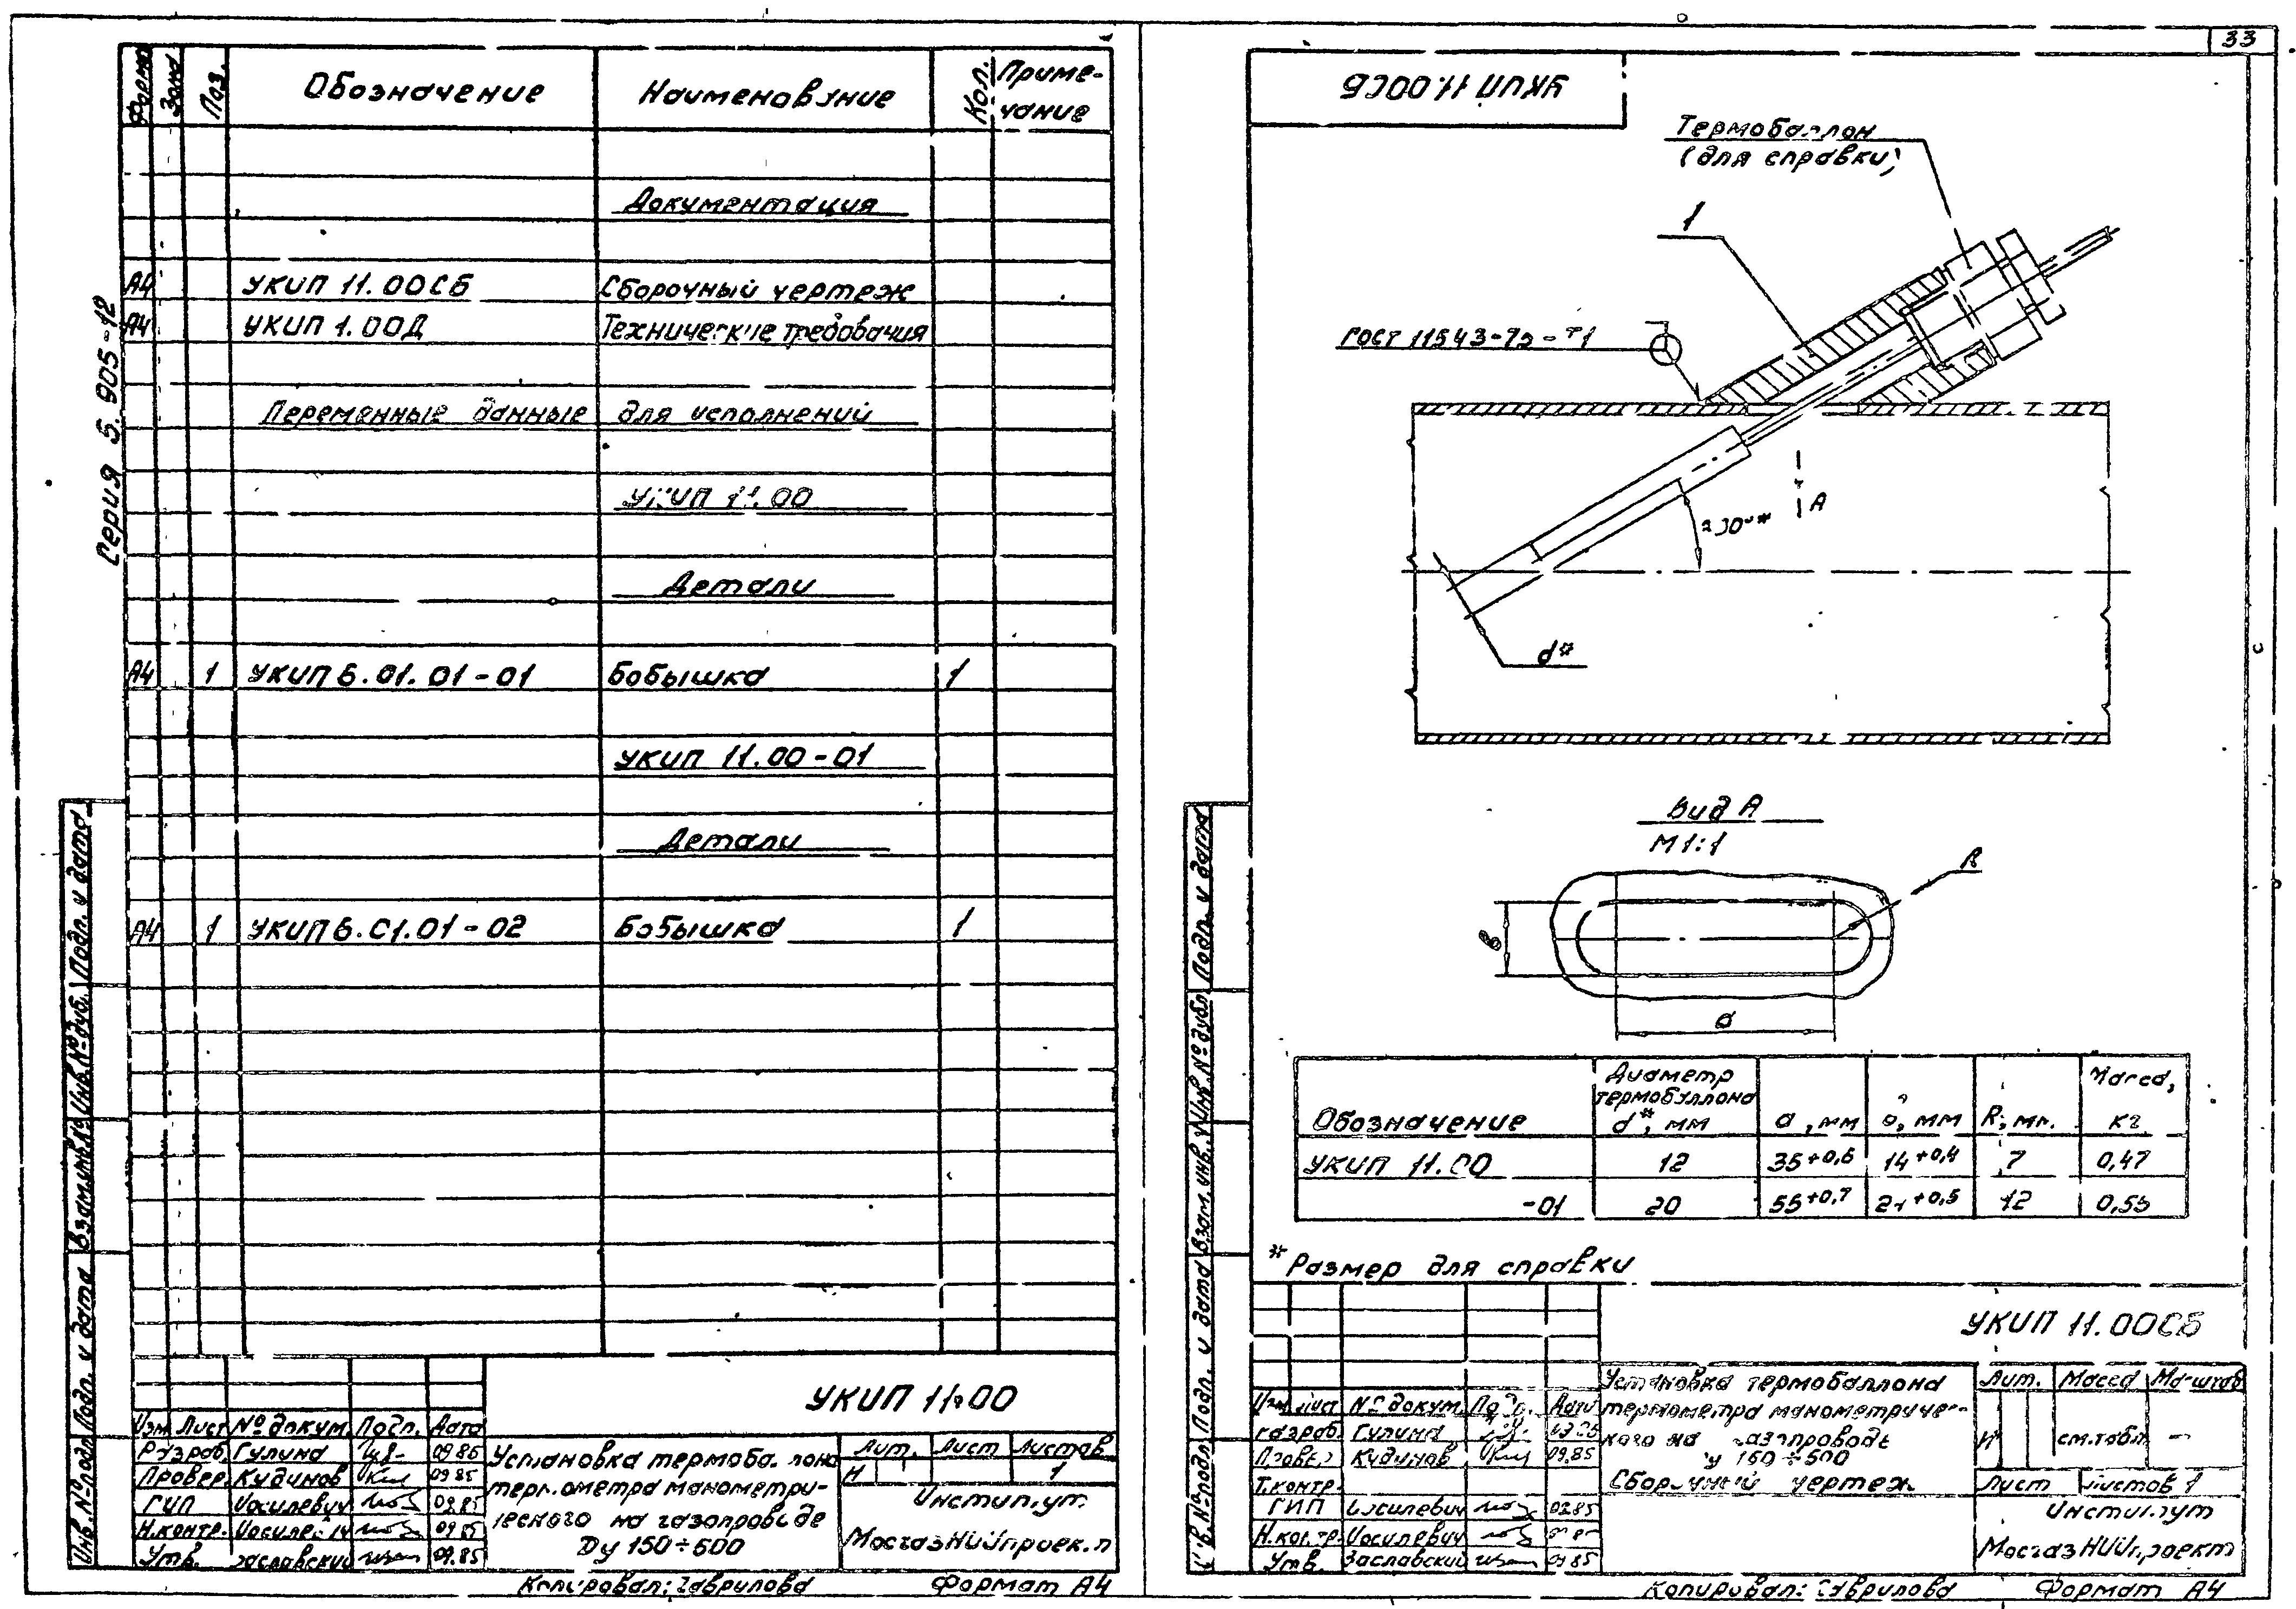 33
Серия 5.905-12
Поз.
Обозначение
Наименование
Кол.
Приме-
чание
Документация
А4 УКИП 11.00СБ Сборочный чертеж
А4 УКИП 1.00Д Технические требования
Переменные данные для исполнений
УКИП 11.00
Детали
А4 1 УКИП 6.01.01-01 Бобышка 1
УКИП 11.00-01
Детали
А4 1 УКИП 6.01.01-02 Бобышка 1
Инв.№подл. Подп. и дата Взам.инв.№ Инв.№дубл. Подп. и дата
УКИП 11.00
Изм Лист № докум. Подп. Дата
Разраб. Гулина 09.85
Провер. Кудинов 09.85
ГИП Иосилевич 09.85
Н.контр. Иосилевич 09.85
Утв. Заславский 09.85
Установка термобаллона
термометра манометри-
ческого на газопроводе
Ду 150÷600
Лит. Лист Листов
И 1
Институт
МосгазНИИпроект
Копировал: Гаврилова Формат А4
УКИП 11.00СБ
Термобаллон
(для справки)
1
ГОСТ 11543-75-Т1
А
≈30°*
d*
Вид А
М 1:1
R
в
а
Обозначение
Диаметр
термобаллона
d*, мм
а, мм
в, мм
R, мм.
Масса,
кг
УКИП 11.00 12 35+0,6 14+0,4 7 0,47
-01 20 55+0,7 +0,5 12
* Размер для справки
Инв.№подл. Подп. и дата Взам.инв.№ Инв.№дубл. Подп. и дата
УКИП 11.00СБ
Изм Лист № докум. Подп. Дата
Разраб. Гулина
Провер. Кудинов 09.85
Т.контр.
ГИП Иосилевич 09.85
Н.контр. Иосилевич
Утв. Заславский 09.85
Установка термобаллона
термометра манометричес-
кого на газопроводе
Ду 150÷600
Сборочный чертеж
Лит. Масса Масштаб
И см.табл. —
Лист Листов 1
Институт
МосгазНИИпроект
Копировал: Гаврилова Формат А4